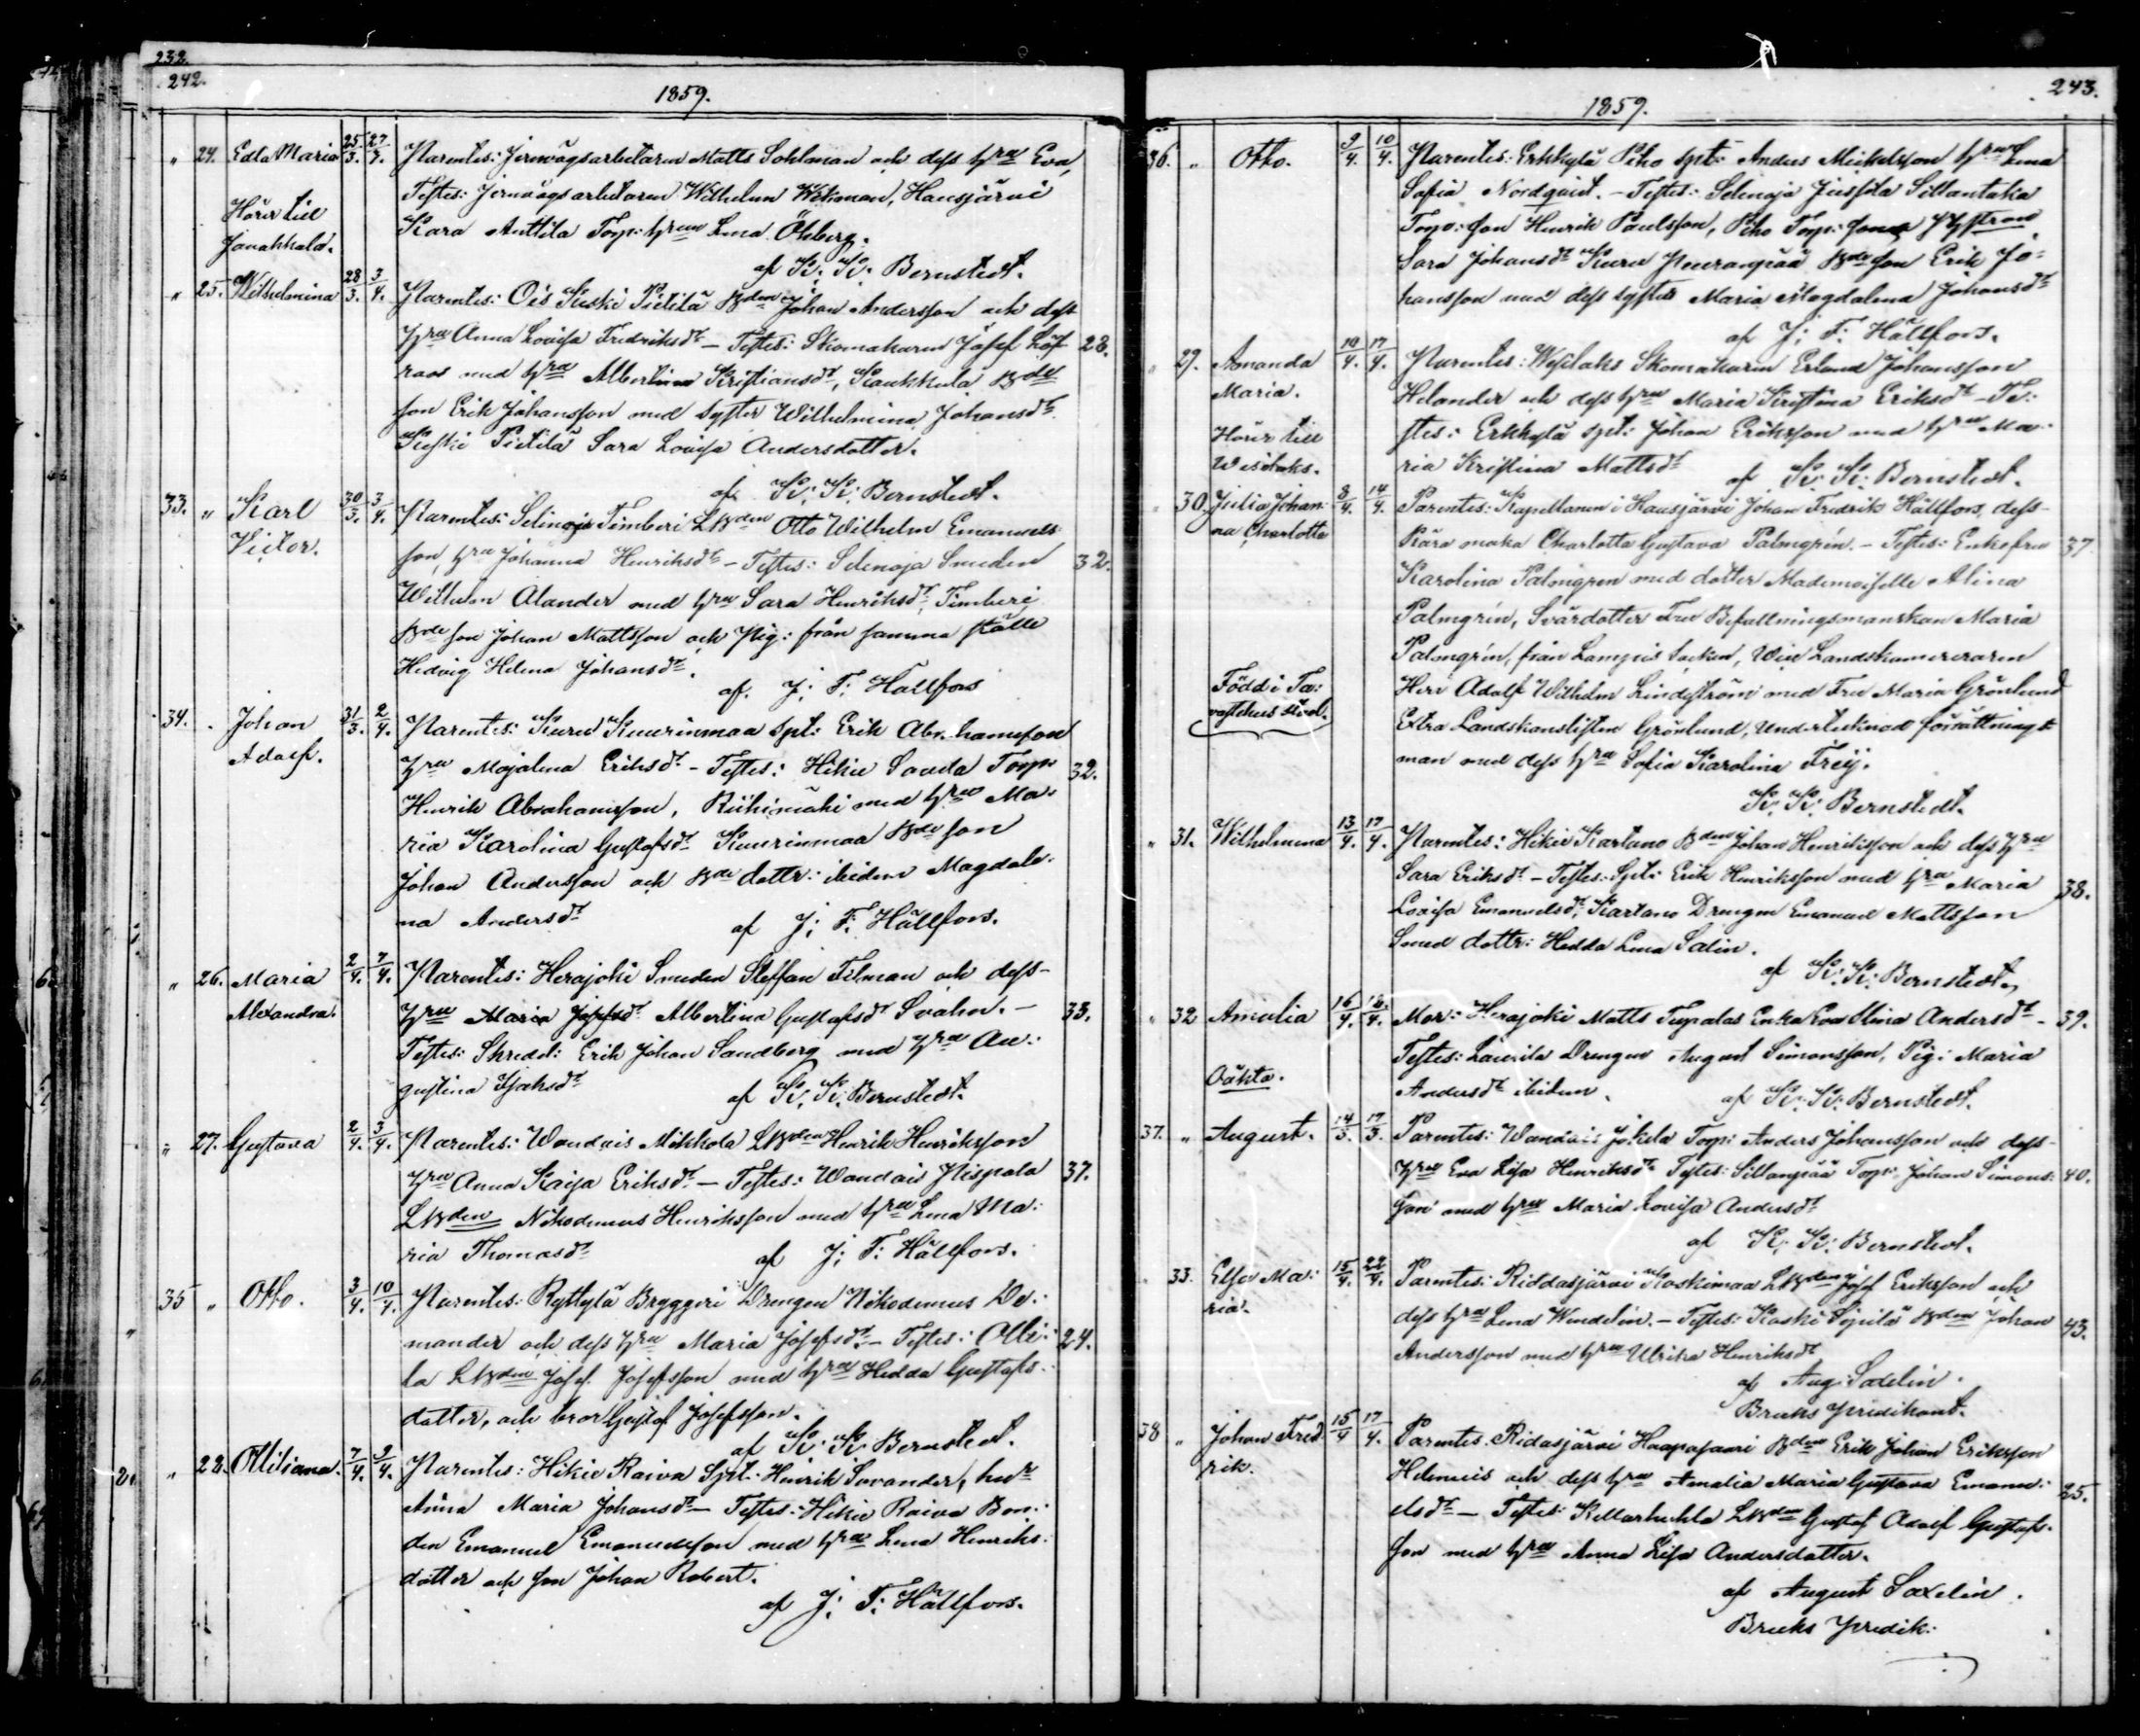 232.
242.
1859.
" 24. Edla Maria 25/3. 27/3. Parentes: Jernvägsarbetaren Matts Sohlman och dess hru Eva,
Testes: Jernvägsarbetaren Wilhelm Wikman, Hausjärvi
Hörer till
Janakkala.
Kara Anttila Torp: hrun Lena Öhberg.
af K: K: Bernstedt.
" 25. Wilhelmina 28/3. 3/4. Parentes: Ois Keski Pietilä Bden Johan Andersson och dess
hru Anna Lovisa Fredriksdr – Testes: Skomakaren Josef Löf 28.
roos med hru Albertina Kristiansdr, Kaukkula Bde
son Erik Johansson med syster Wilhelmina Johansdr
Keski Pietilä Sara Lovisa Andersdotter.
af K: K: Bernstedt.
33. " Karl 30/3. 3/4. Parentes: Selinoja Timberi LBden Otto Wilhelm Emanuels
Victor.
son, hru Johanna Henriksdr – Testes: Selinoja Smeden 32.
Wilhelm Alander med hru Sara Henriksdr, Timberi
Bde son Johan Mattsson och Pig: från samma ställe
Hedvig Helena Johansdr.
af. J: F: Hällfors
34. Johan 31/3. 2/4. Parentes: Kuru Kuurinmaa Spt: Erik Abrahamsson
Adolf.
hru Majalena Eriksdr – Testes: Hikie Torp: 32.
Henrik Abrahamsson, Riihimäki med hru Ma:
ria Karolina Gustafsdr Kuurinmaa Bde son
Johan Andersson och Bde dottr: ibidem Magdale:
na Andersdr
af J: F: Hällfors.
" 26. Maria 2/4. 7/4. Parentes: Herajoki Smeden Steffan Tilman och dess
Alexandra.
hru Maria Josefsdr Albertina Gustafsdr Svahn. – 33.
Testes: Skredd: Erik Johan Sandberg med hru Au:
gustina Isaksdr
af K: K: Bernstedt.
" 27. Gustava 2/4. 3/4. Parentes: Wandais Mikkola LBden Henrik Henriksson
hru Anna Kaisa Eriksdr – Testes: Wandais Pispala 37.
LBden Nikodemus Henriksson med hru Lena Ma:
ria Thomasdr
af J: F: Hällfors.
35 " Otto. 3/4. 10/4. Parentes: Ryttylä Bryggeri Drengen Nikodemus We:
mander och dess hru Maria Josefsdr – Testes: Olli: 24.
la LBden Josef Josefsson med hru Hedda Gustafs:
dotter, och bror Gustaf Josefsson.
af K: K: Bernstedt.
" 28. Ottiliana. 7/4. 9/4. Parentes: Hikie Raiva Spt: Henrik Savander, hru
Anna Maria Johansdr – Testes: Hikie Raiva Bon:
den Emanuel Emanuelsson med hru Lena Henriks:
dotter och son Johan Robert.
af J: F: Hällfors.
243.
1859.
36. " Otto. 9/4. 10/4. Parentes: Erkkylä Piho Spt: Anders Mickelsson hrun Lena
Sofia Nordquist. – Testes: Selinoja Jussila Sillantaka
Torp: son Henrik Paulsson, Piho Torp: son
Sara Johansdr Kuru Peuranpää Bde son Erik Jo:
hansson med dess syster Maria Magdalena Johansdr
af J: F: Hällfors.
" 29. Amanda 10/4. 17/4. Parentes: Wesilaks Skomakaren Erland Johansson
Maria.
Helander och dess hru Maria Kristina Eriksdr – Te:
Hörer till
Wesilaks.
stes: Erkkylä Spt: Johan Eriksson med hru Ma:
ria Kristina Mattsdr
af K: K: Bernstedt.
30. Julia Johan: 8/4. 14/4. Parentes: Kapellanen i Hausjärvi Johan Fredrik Hällfors, dess
na Charlotta
Kära maka Charlotta Gustava Palmgrén. – Testes: Enkefru 37.
Karolina Palmgren med dotter Mademoiselle Alina
Palmgrén, Svärdotter Fru Befallningsmanskan Maria
Palmgrén, från Lampis Socken, Landskamereraren
Född i Ta:
vastehus stad.
Herr Adolf Wilhelm Lindström med Fru Maria Grönlund
Extra Landskanslisten Grönlund, Undertecknad förrättnings
man med dess hru Sofia Karolina Freij.
K: K: Bernstedt.
" 31. Wilhelmina 13/4. 17/4. Parentes: Hikie Kartano Bden Johan Henriksson och dess hru
Sara Eriksdr – Testes: Spt: Erik Henriksson med hru Maria 38.
Lovisa Emanuelsdr, Kartano Drengen Emanuel Mattsson
Smed dottr: Hedda Lena Salin.
af K: K: Bernstedt.
" 32 Amalia 16/4. Mor: Herajoki Matts Enka Eva Stina Andersdr – 39.
Oäkta.
Testes: Laurila Drengen August Simonsson, Pig: Maria
Andersdr ibidem.
af K: K: Bernstedt.
37. " August. 14/3. 17/3. Parentes: Wandais Jokela Torp: Anders Johansson och dess
hru Eva Lisa Henriksdr Testes: Sillanpää Torp: Johan Simons: 40.
son med hru Maria Lovisa Andersdr
af K: K: Bernstedt.
33. Elsa Ma: 15/4. 22/4. Parentes: Riddasjärvi Koskimaa LBden Josef Eriksson och
ria.
dess hru Lena Wendelin. – Testes: Koski Sipilä Bden Johan 43.
Andersson med hru Ulrika Henriksdr
af Aug: Saxelin.
Bruks Predikant.
38 " Johan Fred: 15/4 17/4. Parentes: Ridasjärvi Haapasaari Bden Erik Johan Eriksson
rik.
Helenius och dess hru Amalia Maria Gustava Emanu: 25.
elsdr – Testes: LBden Gustaf Adolf Gustafs:
son med hru Anna Lisa Andersdotter.
af August Saxelin.
Bruks Predik: